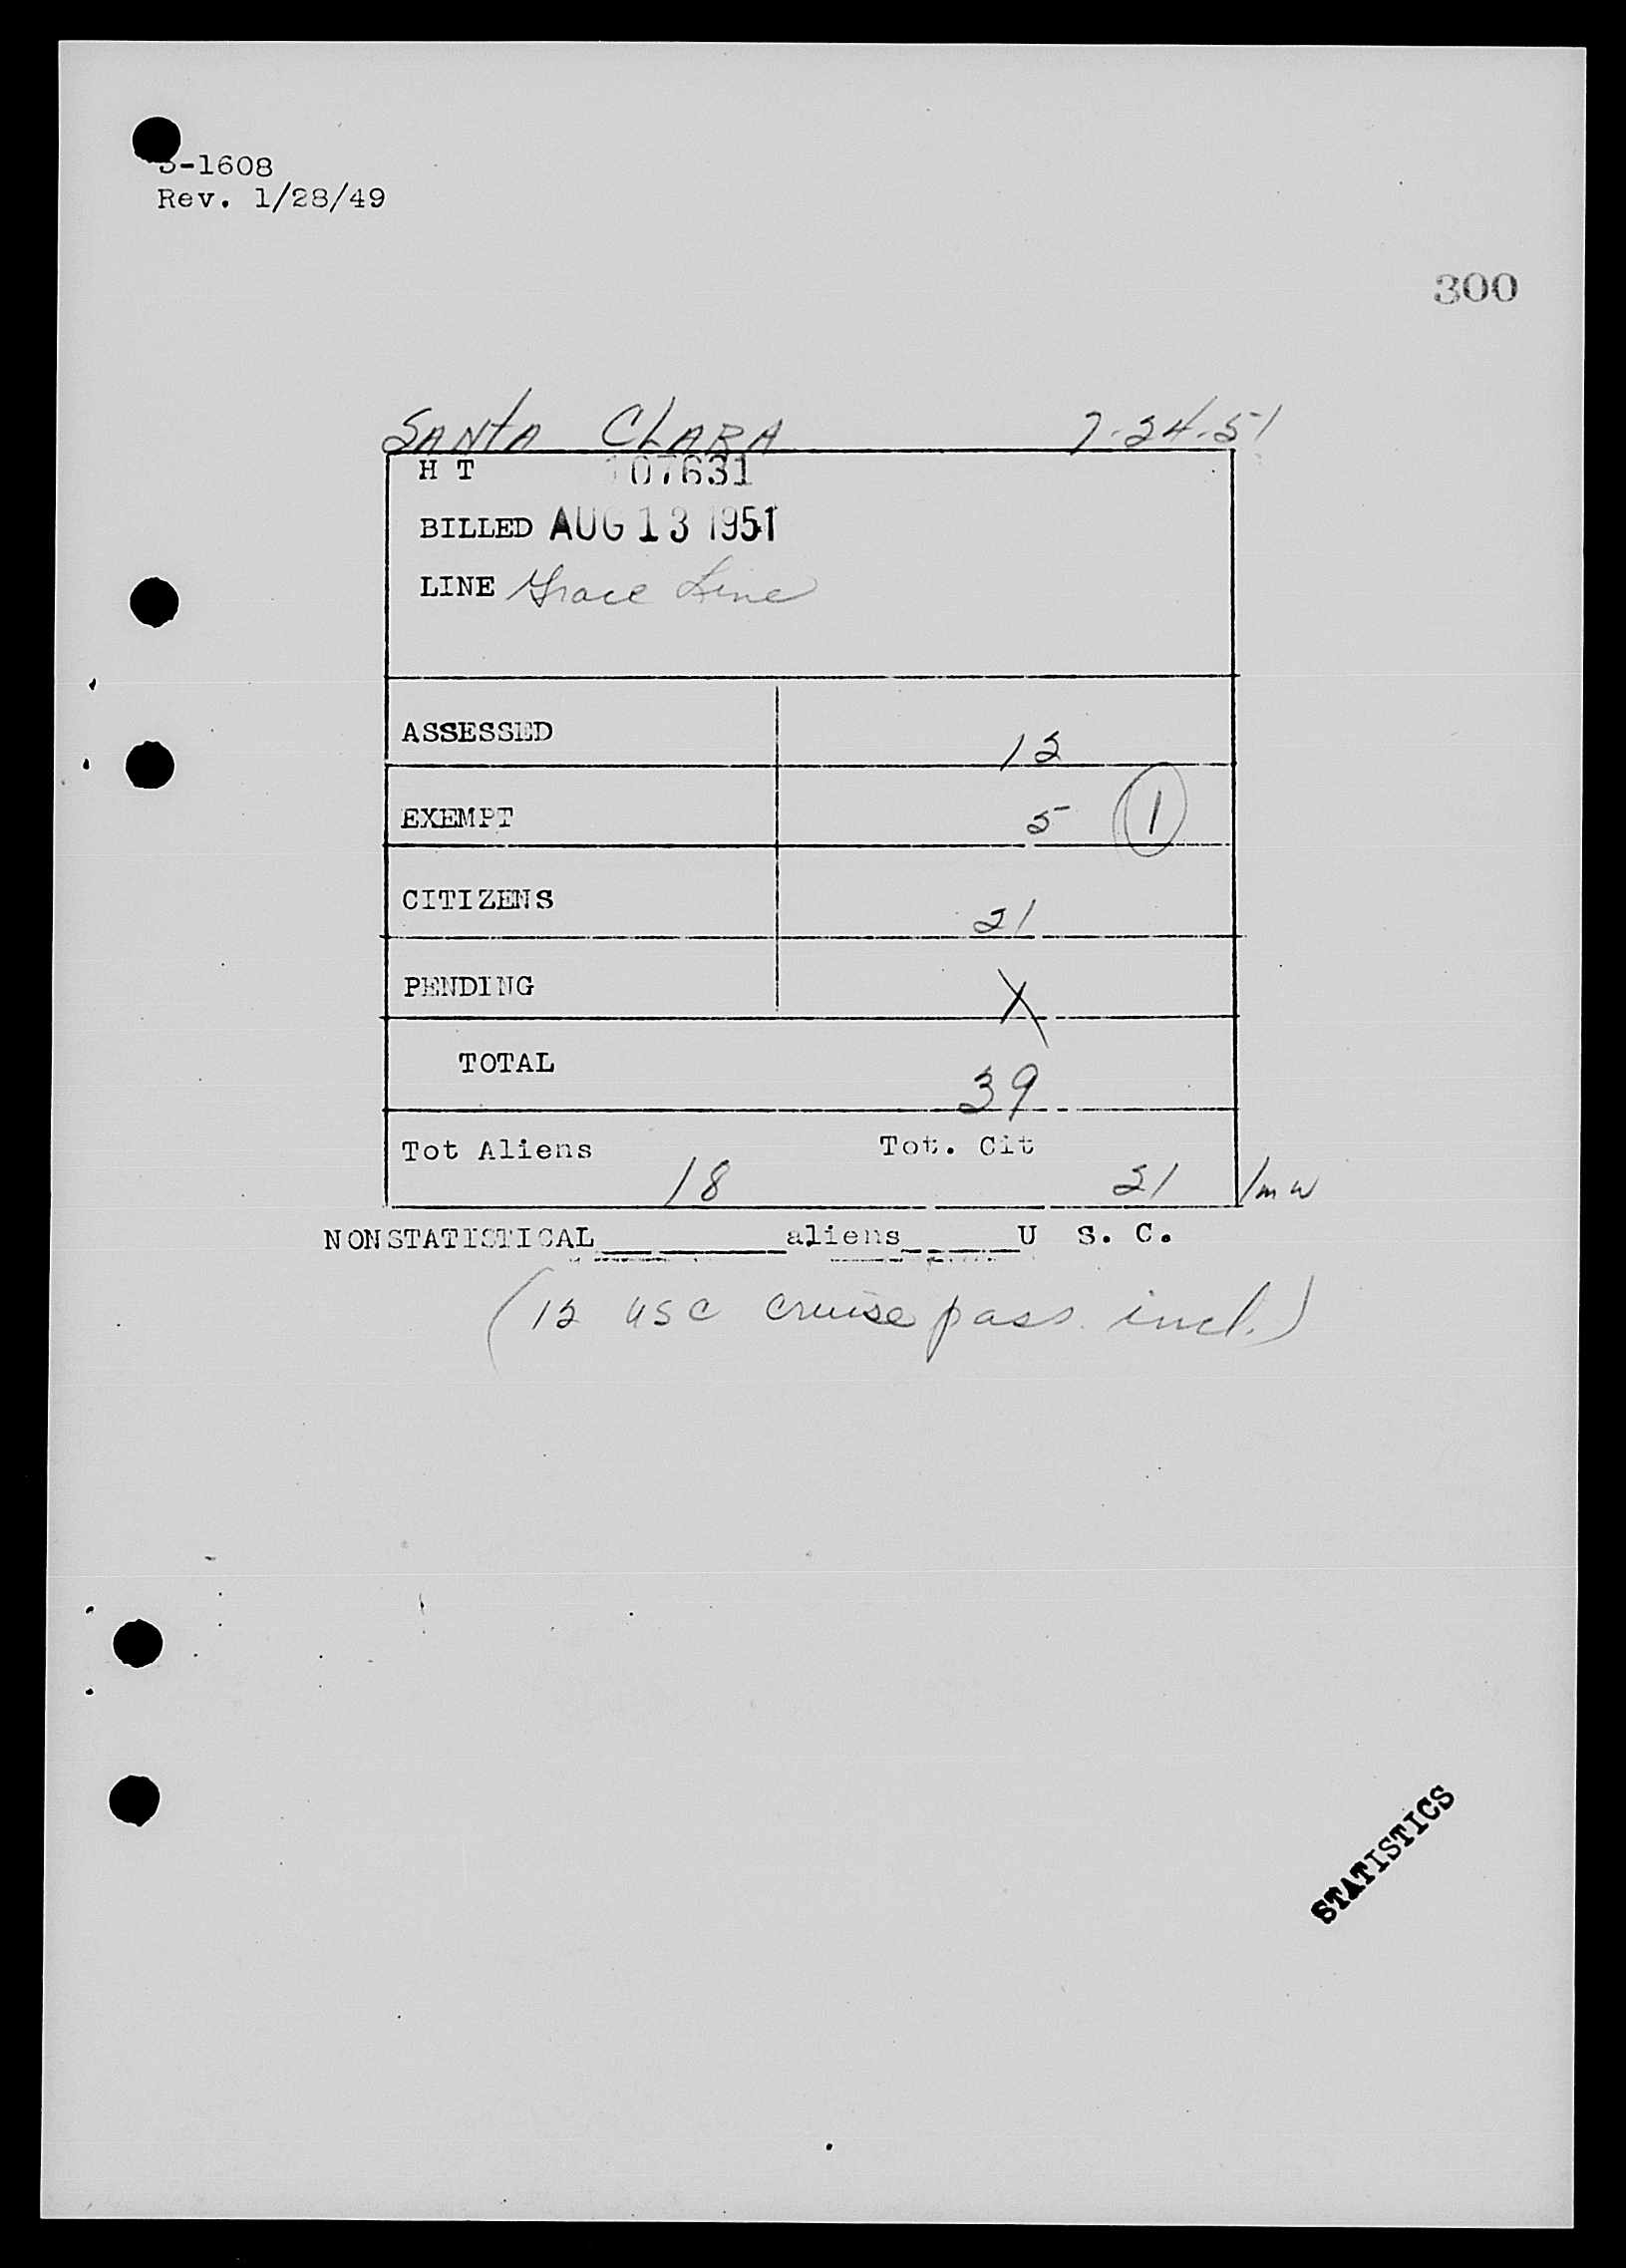 -1608
Rev. 1/28/49
300
SANTA CLARA 7-24-51
H T 107631
BILLED AUG 13 1951
LINE Grace Line
ASSESSED 12
EXEMPT 5 1
CITIZENS 21
PENDING X
TOTAL 39
Tot Aliens 18 Tot. Cit 21 1mw
NONSTATISTICAL aliens U S. C.
(12 USC cruise pass. incl.)
STATISTICS